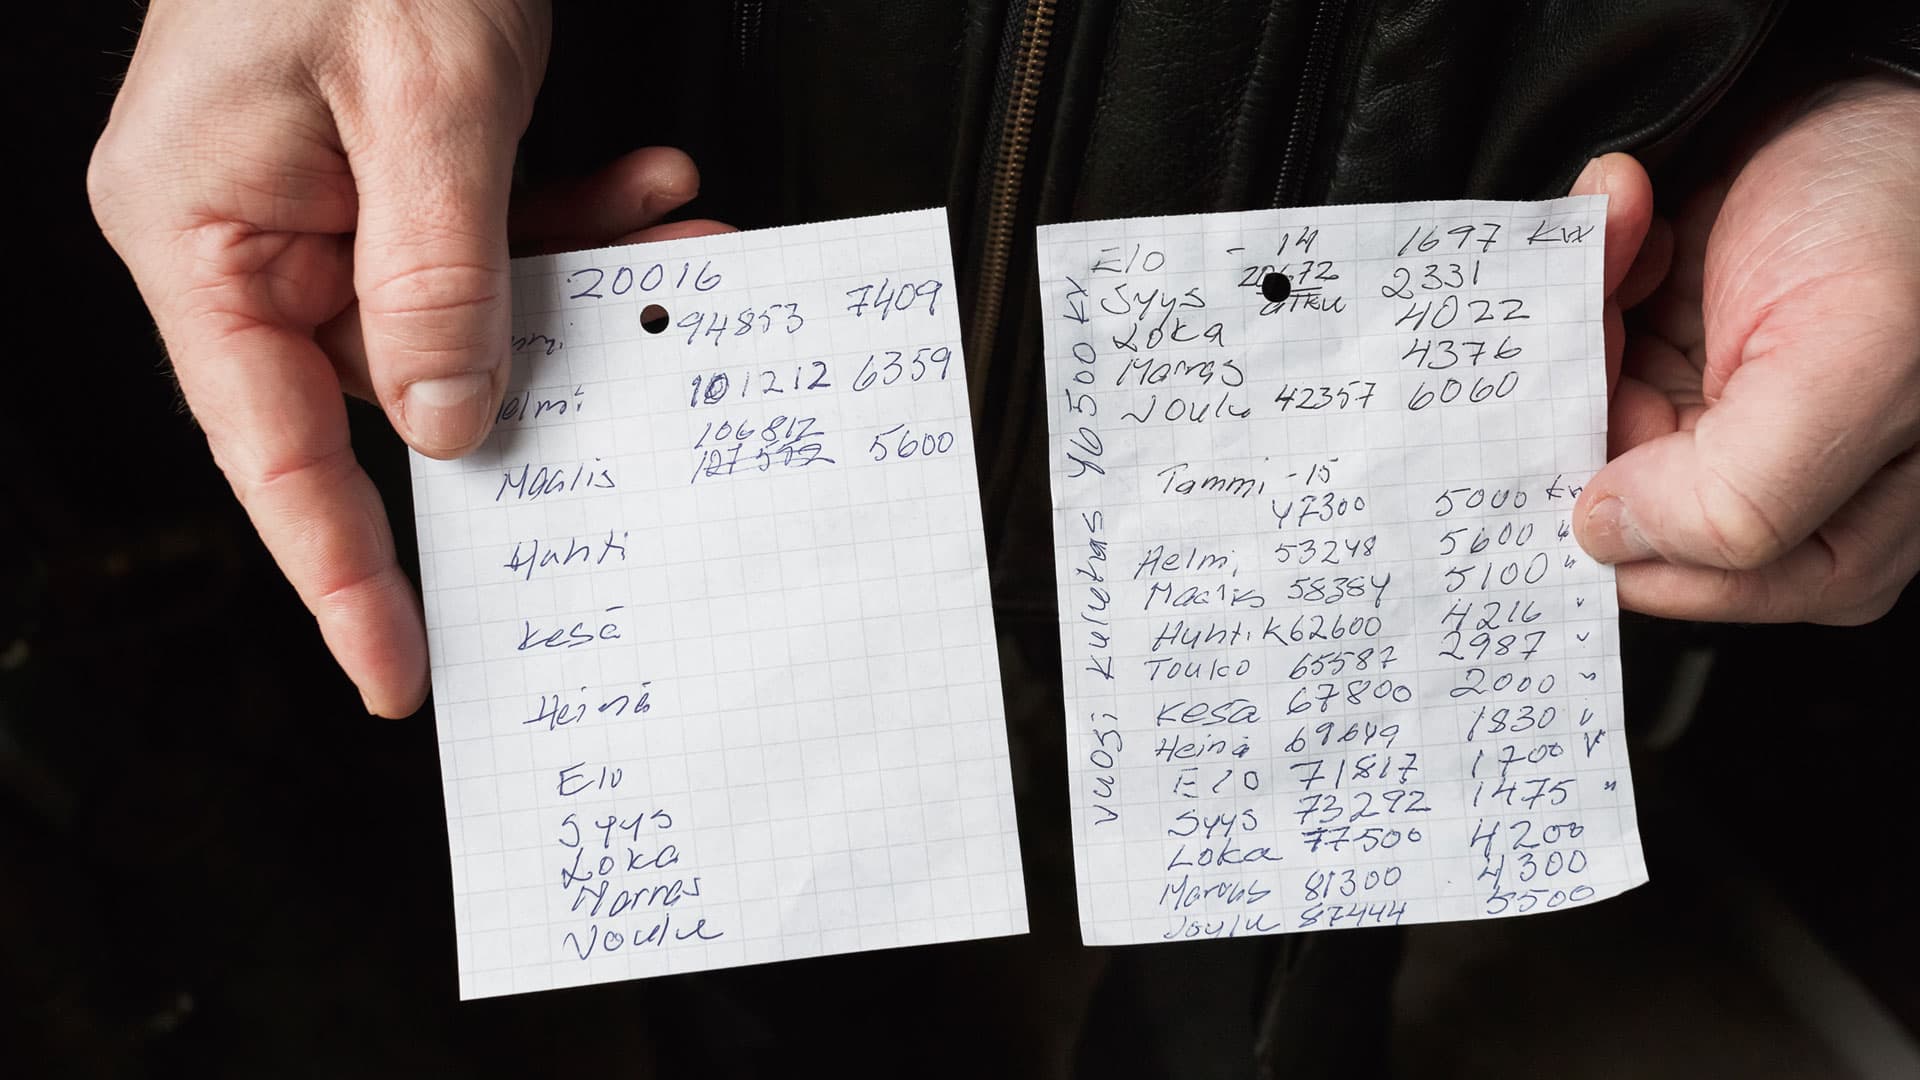 20016
94853 7409
101212 6359
106812
Maalis 5600
Huhti
Kesä
Heinä
Elo
Syys
Loka
Marras
Joulu
Elo - 14 1697 KW
Syys 2331
alku
Loka 4022
Marras 4376
Joulu 42357 6060
Tammi -15
47300 5000 KW
Helmi 53248 5600 "
Maalis 58384 5100 "
Huhti K62600 4216 "
Touko 65587 2987 "
Kesä 67800 2000 "
Heinä 69649 1830 "
Elo 71817 1700 "
Syys 73292 1475 "
Loka 77500 4200
Marras 81300 4300
Joulu 87444 5500
vuosi kulutus 46500 KW